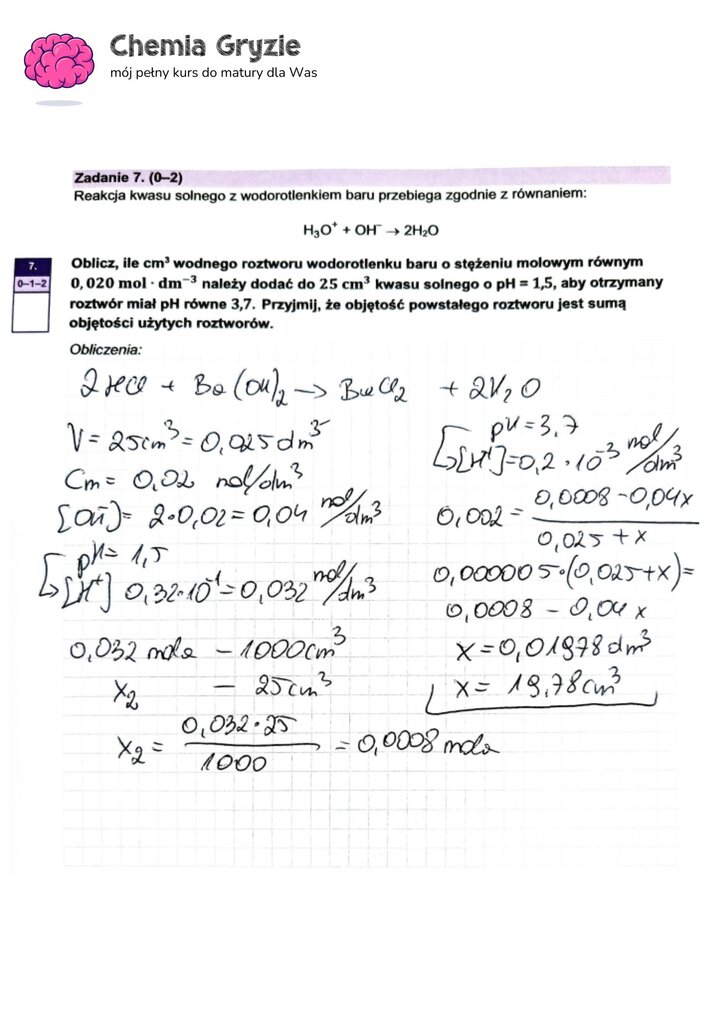 Chemia Gryzie
mój pełny kurs do matury dla Was
Zadanie 7. (0–2)
Reakcja kwasu solnego z wodorotlenkiem baru przebiega zgodnie z równaniem:
H₃O⁺ + OH⁻ → 2H₂O
7.
0–1–2
Oblicz, ile cm³ wodnego roztworu wodorotlenku baru o stężeniu molowym równym
0,020 mol · dm⁻³ należy dodać do 25 cm³ kwasu solnego o pH = 1,5, aby otrzymany
roztwór miał pH równe 3,7. Przyjmij, że objętość powstałego roztworu jest sumą
objętości użytych roztworów.
Obliczenia:
2HCl + Ba(OH)₂ → BaCl₂ + 2H₂O
V = 25cm³ = 0,025 dm³
Cm = 0,02 mol/dm³
[OH⁻] = 2·0,02 = 0,04 mol/dm³
pH = 1,5
[H⁺] 0,32·10⁻¹ = 0,032 mol/dm³
0,032 mola – 1000cm³
x₂ – 25cm³
x₂ = 0,032·25 / 1000 = 0,0008 mola
pH = 3,7
[H⁺] = 0,2·10⁻³ mol/dm³
0,002 = 0,0008 – 0,04x / 0,025 + x
0,000005·(0,025+x) =
0,0008 – 0,04x
x = 0,01978 dm³
x = 19,78cm³